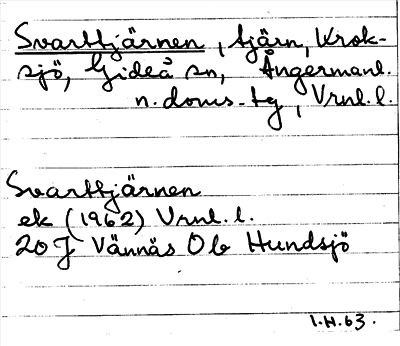 Svarttjärnen, tjärn, Krok-
sjö, Gideå sn, Ångermanl.
n. doms. tg, Vrnl. l.
Svarttjärnen
ek (1962) Vrnl. l.
20 J Vännäs Ob Hundsjö
I.H.63.